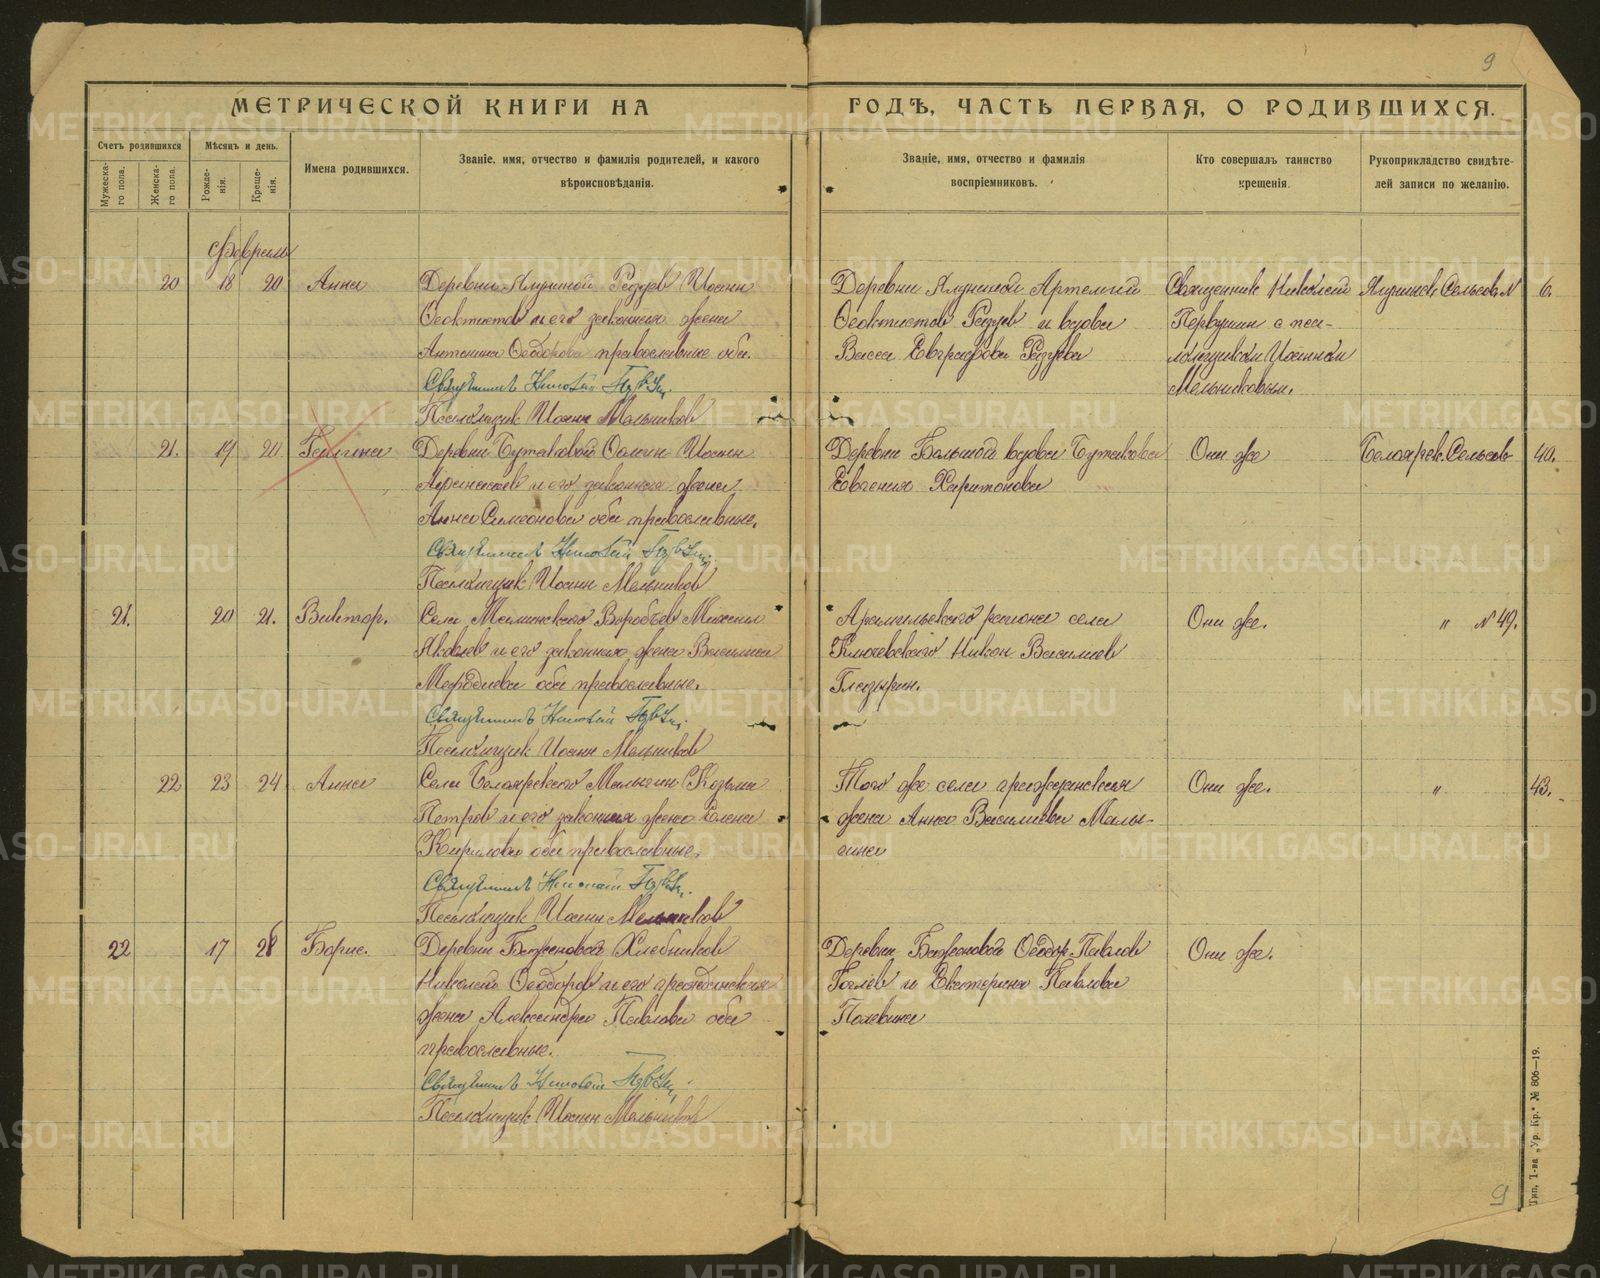 9
МЕТРИЧЕСКОЙ КНИГИ НА ГОДЪ, ЧАСТЬ ПЕРВАЯ, О РОДИВШИХСЯ.
Счетъ родившихся
Мужеска-го пола.
Женска-го пола.
Мѣсяцъ и день.
Рожде-нія.
Креще-нія.
Имена родившихся.
Званіе, имя, отчество и фамилія родителей, и какого
вѣроисповѣданія.
Званіе, имя, отчество и фамилія
воспріемниковъ.
Кто совершалъ таинство
крещенія.
Рукоприкладство свидѣте-
лей записи по желанію.
Февраль
20 18 20 Анна
Деревни Ялуниной Рядуев Иоанн
Феоктистов и его законная жена
Антонина Феодорова православные оба.
Священник Николай
Псаломщик Иоанн Мельников
Деревни Ялуниной Артемий
Феоктистов и вдова
Васса Евграфова
Священник Николай
Первушин с пса-
ломщиком Иоанном
Мельниковым.
Ялунинск. Сельсов. № 6.
21. 19 20. Галина
Деревни Бутаковой Фомин Иоанн
Афанасьев и его законная жена
Анна Симеонова оба православные.
Священник Николай
Псаломщик Иоанн Мельников
Деревни Большой вдова Бутакова
Евгения Харитонова
Они же
Белоярск. Сельсов 40.
21. 20 21. Виктор.
Села Мезенского Воробьев Михаил
Яковлев и его законная жена Василиса
Мефодиева оба православные.
Священник Николай
Псаломщик Иоанн Мельников
Арамильского района села
Ключевского Никон Василиев
Глазырин.
Они же.
" № 49.
22 23 24 Анна
Села Белоярского Малыгин Козьма
Петров и его законная жена Елена
Кирилова оба православные.
Священник Николай
Псаломщик Иоанн Мельников
Того же села гражданская
жена Анна Василиева Малы-
гина
Они же.
" 43.
22 17 28 Борис.
Деревни Баженовой Хлебников
Николай Феодоров и его гражданская
жена Александра Павлова оба
православные.
Священник Николай
Псаломщик Иоанн Мельников
Деревни Баженовой Феодор Павлов
и Екатерина Павлова
Они же.
Тип. Т-ва „Ур. Кр." № 806—19.
9
METRIKI.GASO-URAL.RU